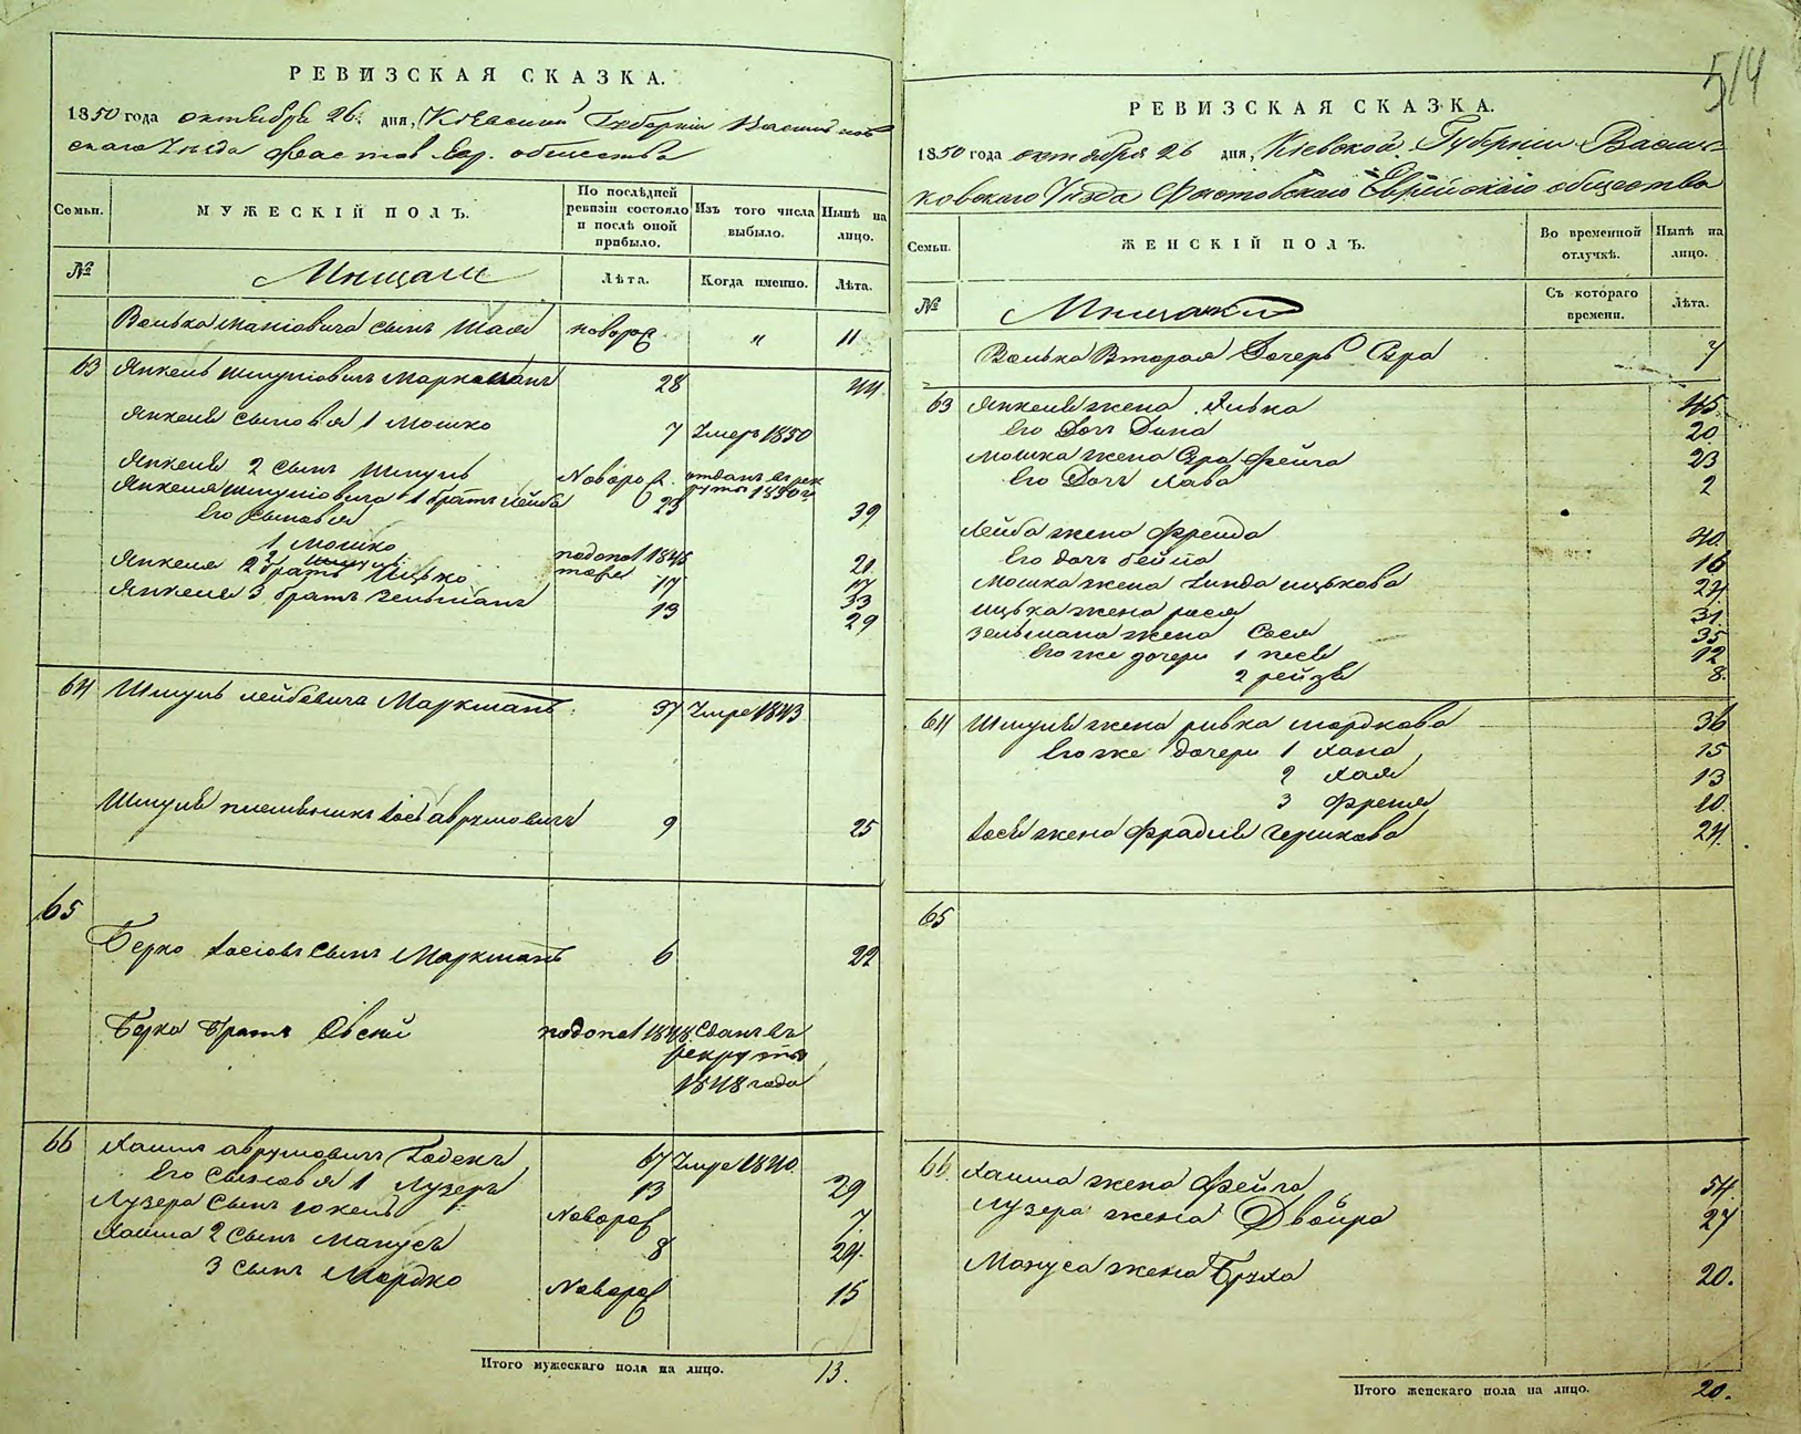 514
РЕВИЗСКАЯ СКАЗКА.
1850 года октября 26. дня, Кіевской Губерніи Васильков
скаго Уезда Фастов. Евр. общества
Семьи.
МУЖЕСКІЙ ПОЛЪ.
По послѣдней ревизіи состояло и послѣ оной прибыло.
Изъ того числа выбыло.
Нынѣ на лицо.
№
Мещане
Лѣта.
Когда именно.
Лѣта.
Волька сынъ новорож. " 11
63 Янкель Шмуліовичъ Маркманъ 28 44.
Янкеля сыновья 1 Мошко 7 Умеръ 1850
Янкеля 2 сынъ Шмуль Новорож. отданъ въ рек
руты 1850 г.
Янкеля Шмуліовича 1 братъ Лейба 23 39
Его сыновья
1 Мошко 21
2 Шмуль 17 17
Янкеля 2 братъ Ицько 17 33
Янкеля 3 братъ Зельманъ 13 29
64 Шмуль Лейбовичъ Маркманъ 37 Умре 1843
Шмуля племянникъ Іось Аврумовичъ 9 25
65
Берко Іосіовъ сынъ Маркманъ 6 22
Берка братъ Овсей 1848 Сданъ въ
рекруты
1848 года
66 Хаимъ Аврумовичъ 67 Умре 1840.
Его сыновья 1 Лузеръ 13 29
Лузера сынъ Новорож 7
Хаима 2 сынъ Манусъ 8 24.
3 сынъ Мордко Новорож 15
Итого мужескаго пола на лицо. 13.
РЕВИЗСКАЯ СКАЗКА.
1850 года октября 26 дня, Кіевской Губерніи Василь-
ковскаго Уезда Фастовскаго Еврейскаго общества
Семьи.
ЖЕНСКІЙ ПОЛЪ.
Во временной отлучкѣ.
Нынѣ на лицо.
№
Мещанки
Съ котораго времени.
Лѣта.
Волька Вторая Дочерь Сура 7
63 Янкеля жена Ривка 45.
Его Доч Дина 20.
Мошка жена Сура Фейга 23
Его Доч Хава 2
Лейба жена Фрейда 40.
Его доч Бейла 16
Мошка жена Ицькова 24.
Ицька жена Рася 31.
Зельмана жена Сося 35
Его же дочери 1 Песя 12
2 Рейзя 8.
64 Шмуля жена Ривка Мордкова 36
Его же дочери 1 Хана 15
2 Хая 13
3 10.
Іося жена Фрадля Гершкова 24.
65
66. Хаима жена Фейга 54.
Лузера жена Двойра 27
Мануса жена Бруха 20.
Итого женскаго пола на лицо. 20.